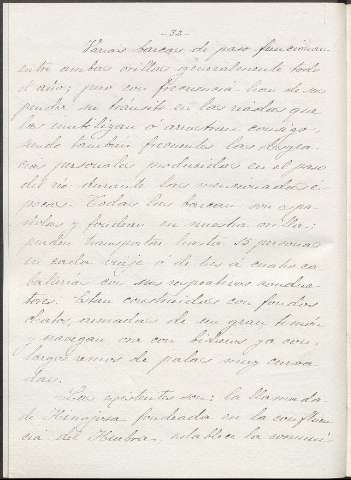 -32-
Varias barcas de paso funcionan
entre ambas orillas generalmente todo
el año; pero con frecuencia han de sus
pender su tránsito en las riadas que
las inutilizan ó arrastran consigo,
siendo tambien frecuentes las desgra-
cias personales producidas en el paso
del rio durante las mencionadas é-
pocas. Todas las barcas son españ
olas y fondean en nuestra orilla;
pueden transportar hasta 15 personas
en cada viaje ó de tres á cuatro ca
ballerias con sus respectivos conduc
tores. Estan construidas con fondos
chatos, armadas de un gran timón
y navegan ora con bicheros ya con
largos remos de palas muy curva
das.
Las existentes son: la llamada
de Hinojosa fondeada en la confluen
cia del Huebra, establece la comuni